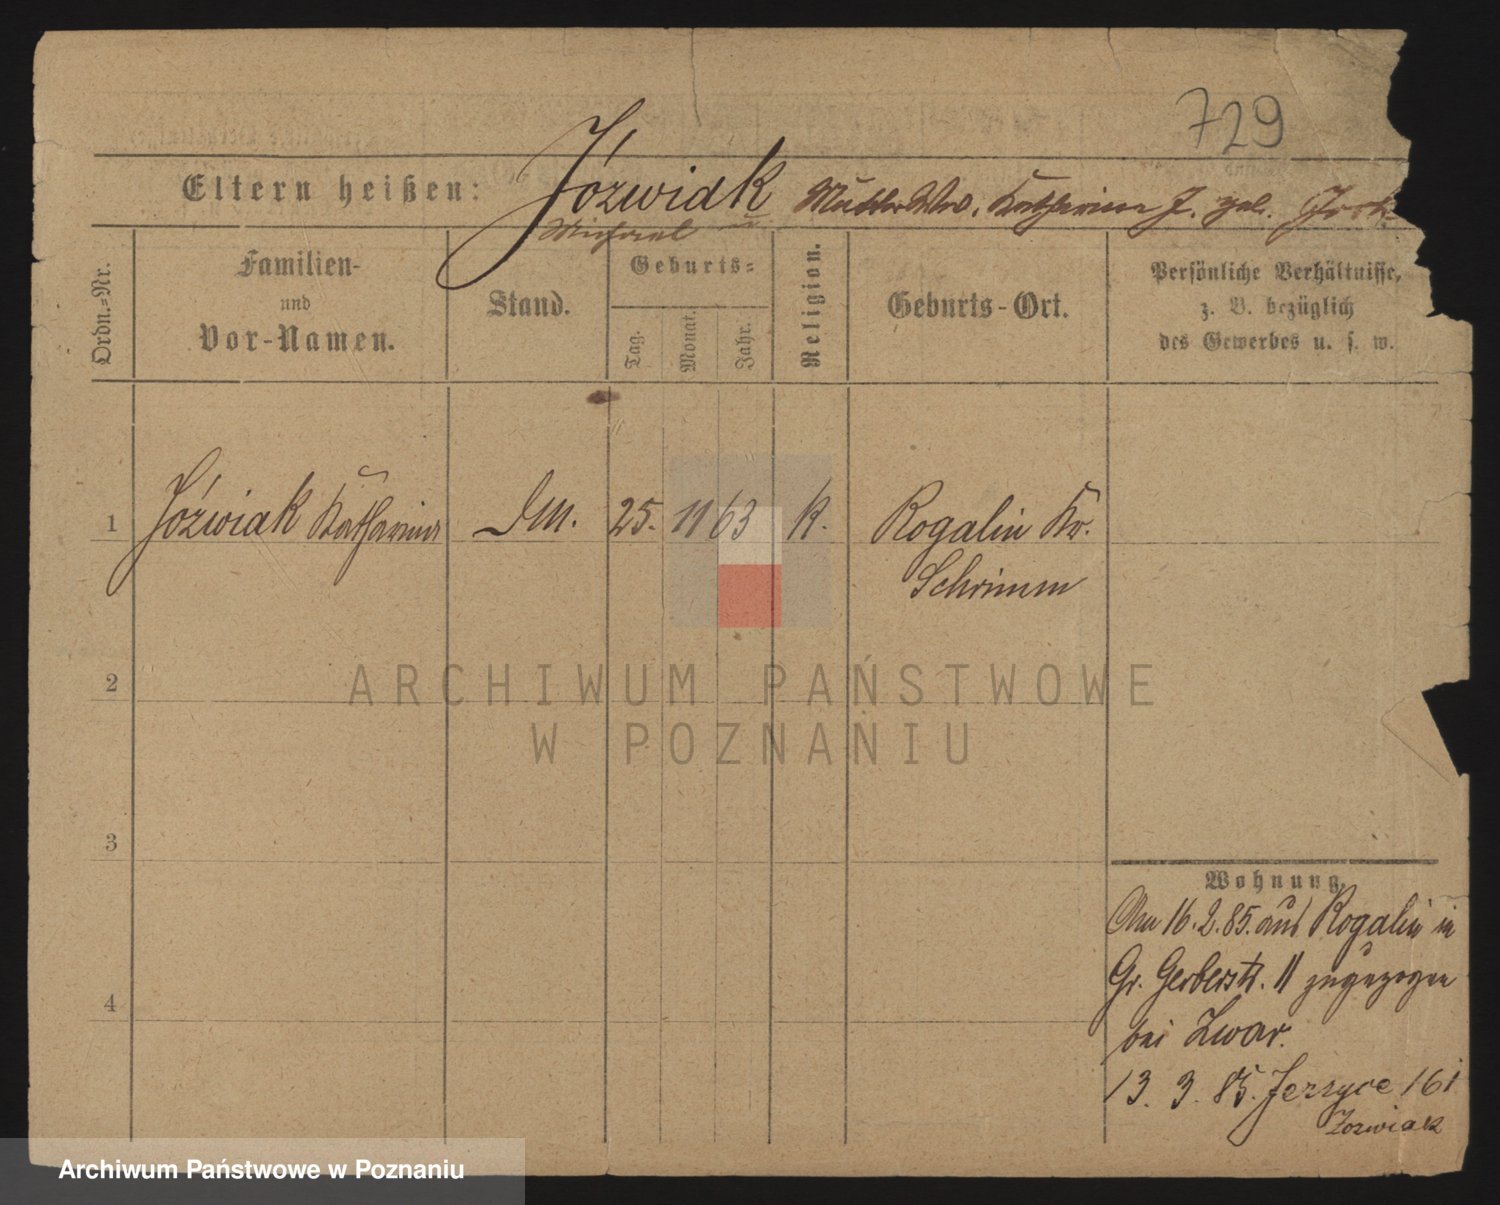 729
Eltern heißen: Józwiak Mutter Ww. Katharina J. geb.
Michael u
Ordn.-Nr.
Familien-
und
Vor-Namen.
Stand.
Geburts-
Tag.
Monat.
Jahr.
Religion.
Geburts-Ort.
Persönliche Verhältnisse,
z. B. bezüglich
des Gewerbes u. s. w.
1 Józwiak Katharina 25. 11 63 K. Rogalin Kr.
Schrimm
2
3
4
Wohnung.
Am 16.2.85. aus Rogalin in
Gr. Gerberstr. 11 zugezogen
bei Zwar.
13. 3. 85. Jerzyce 161
Jozwiak
ARCHIWUM PAŃSTWOWE
W POZNANIU
Archiwum Państwowe w Poznaniu